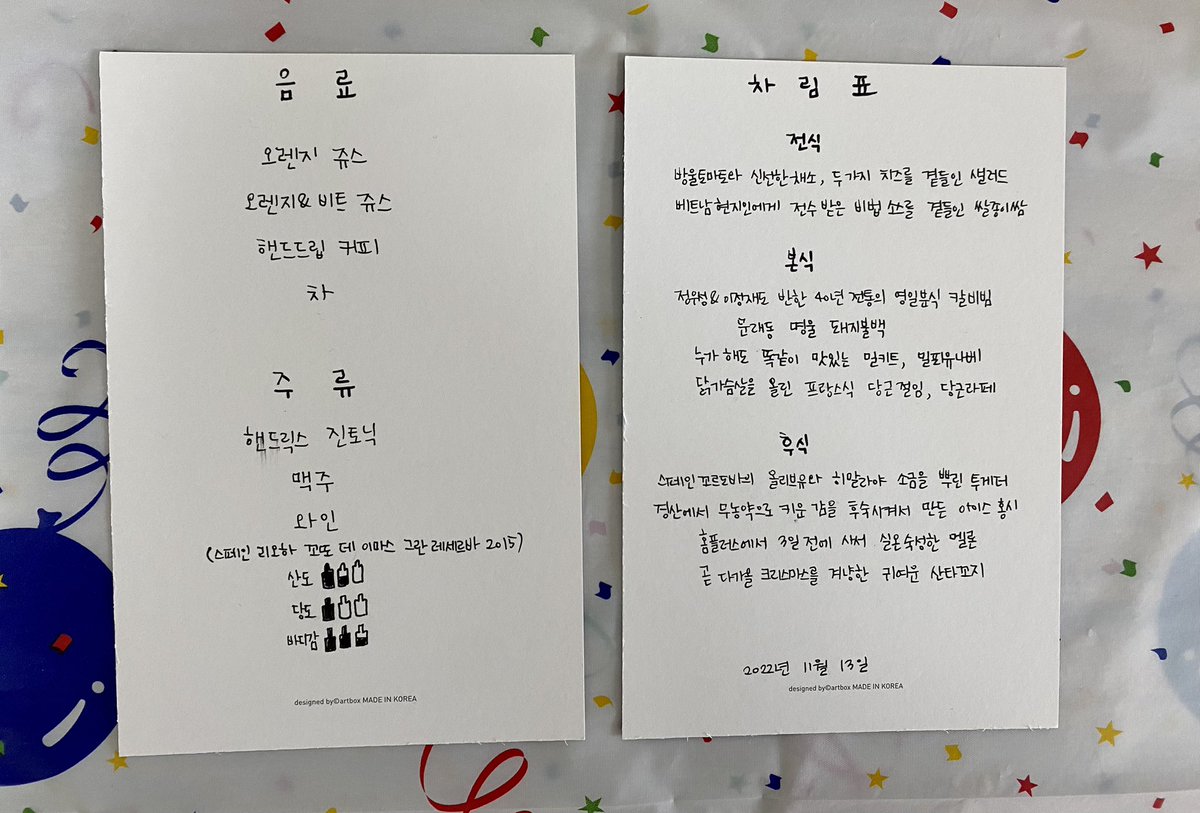 음 료
오렌지 쥬스
오렌지& 비트 쥬스
핸드드립 커피
차
주 류
핸드릭스 진토닉
맥주
와인
(스페인 리오하 꼬또 데 이마스 그란 레세르바 2015)
산도
당도
바디감
designed by©artbox MADE IN KOREA
차 림 표
전식
방울토마토와 신선한 채소, 두가지 치즈를 곁들인 샐러드
베트남 현지인에게 전수 받은 비법 소스를 곁들인 쌀종이쌈
본식
정우성&이정재도 반한 40년 전통의 영일분식 칼비빔
문래동 명물 돼지불백
누가 해도 똑같이 맛있는 밀키트, 밀푀유나베
닭가슴살을 올린 프랑스식 당근절임, 당근라페
후식
스페인 꼬르도바의 올리브유와 히말라야 소금을 뿌린 투게더
경산에서 무농약으로 키운 감을 후숙시켜서 만든 아이스 홍시
홈플러스에서 3일 전에 사서 실온숙성한 멜론
곧 다가올 크리스마스를 겨냥한 귀여운 산타꼬지
2022년 11월 13일
designed by©artbox MADE IN KOREA